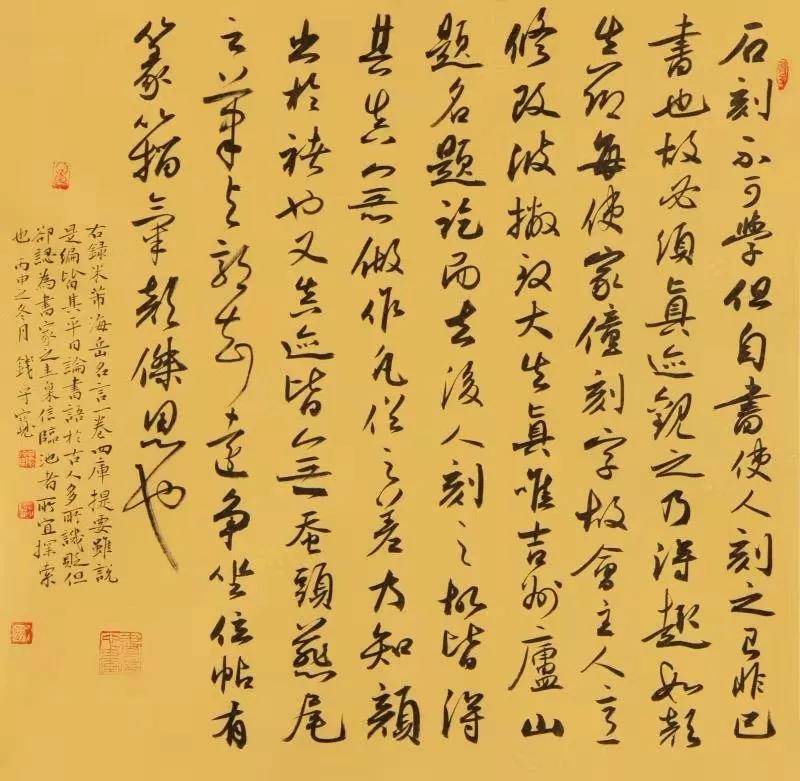 石刻不可學但自書使人刻之已非己
書也故必須眞迹觀之乃得趣如顏
真卿每使家僮刻字故會主人意
修改波撇致大失眞唯吉州廬山
題名題訖而去後人刻之故皆得
其真無做作凡俗之差方知顏
出於褚也又真迹皆無蚕頭燕尾
之筆與郭知運爭坐位帖有
篆籀氣顏傑思也
右録米芾海岳名言一卷四庫提要雖說
是編皆其平日論書語於古人多所譏貶但
卻認為書家之圭臬信臨池者所宜探索
也 丙申之冬月 錢